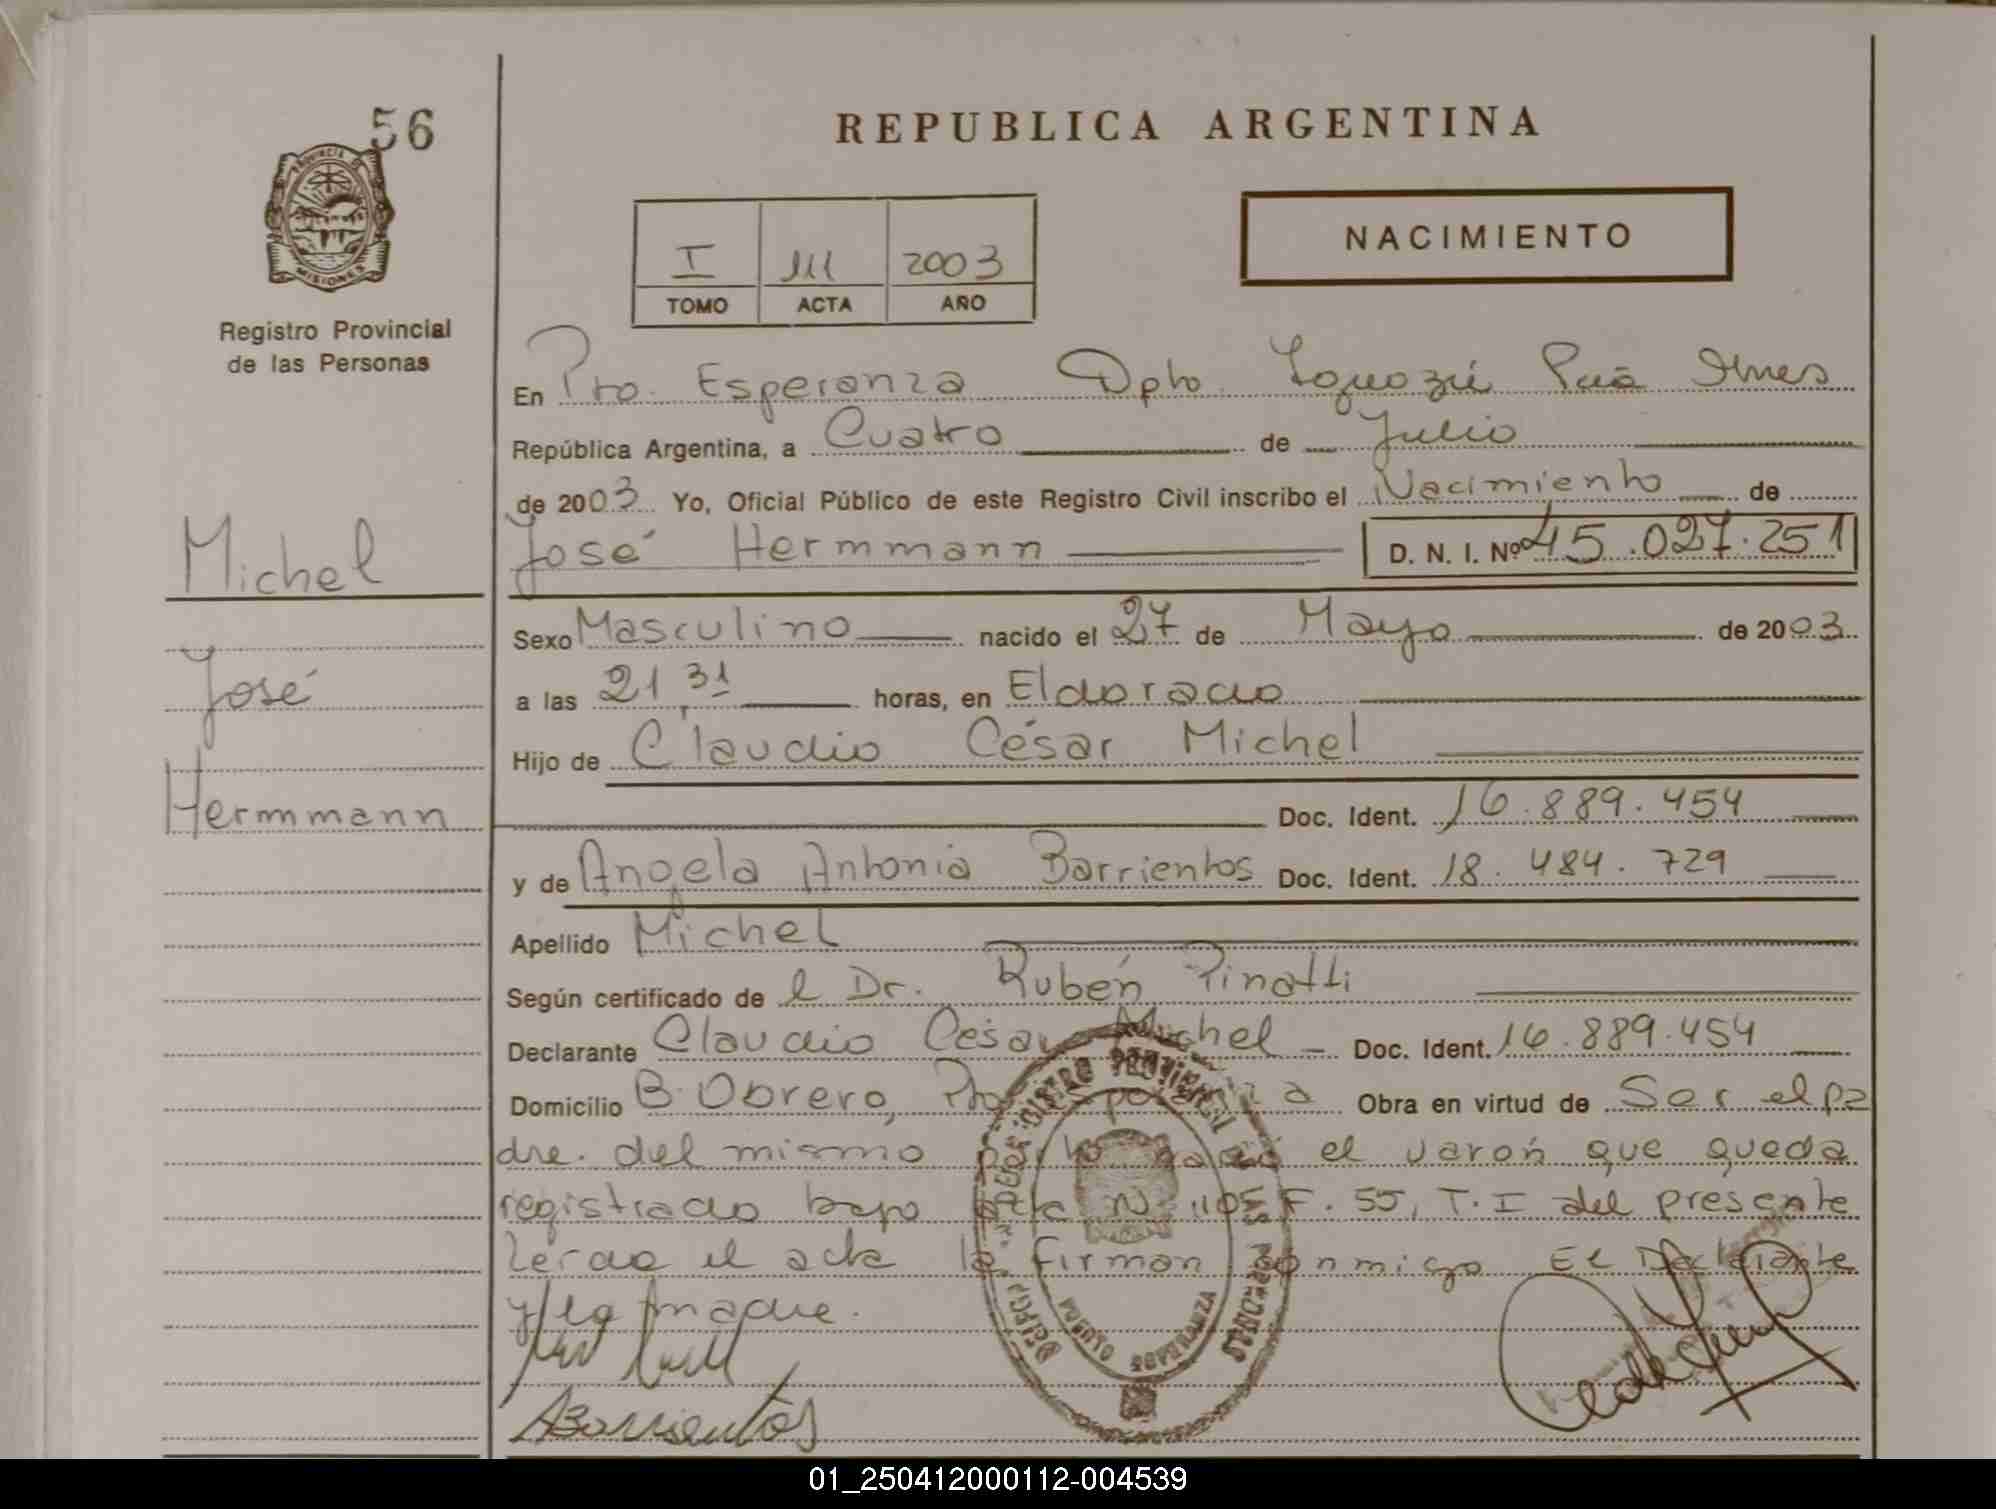 56
REPUBLICA ARGENTINA
PROVINCIA DE
MISIONES
Registro Provincial
de las Personas
I 111 2003
TOMO ACTA AÑO
NACIMIENTO
En Pto. Esperanza Dpto. Iguazú Pcia Mnes
República Argentina, a Cuatro de Julio
de 2003 Yo, Oficial Público de este Registro Civil inscribo el Nacimiento de
Michel
José Hermmann D. N. I. Nº 45.027.251
José
Hermmann
Sexo Masculino nacido el 27 de Mayo de 2003
a las 21,31 horas, en Eldorado
Hijo de Claudio César Michel
Doc. Ident. 16.889.454
y de Angela Antonia Barrientos Doc. Ident. 18.484.729
Apellido Michel
Según certificado de l Dr. Rubén Pinatti
Declarante Claudio César Michel Doc. Ident. 16.889.454
Domicilio B. Obrero, Pto Esperanza Obra en virtud de Ser el pa
dre. del mismo el varón que queda
registrado bajo acta Nº F. 55, T. I del presente
Leída el acta la firman conmigo El Declarante
y la madre.
ABarrientos
01_250412000112-004539